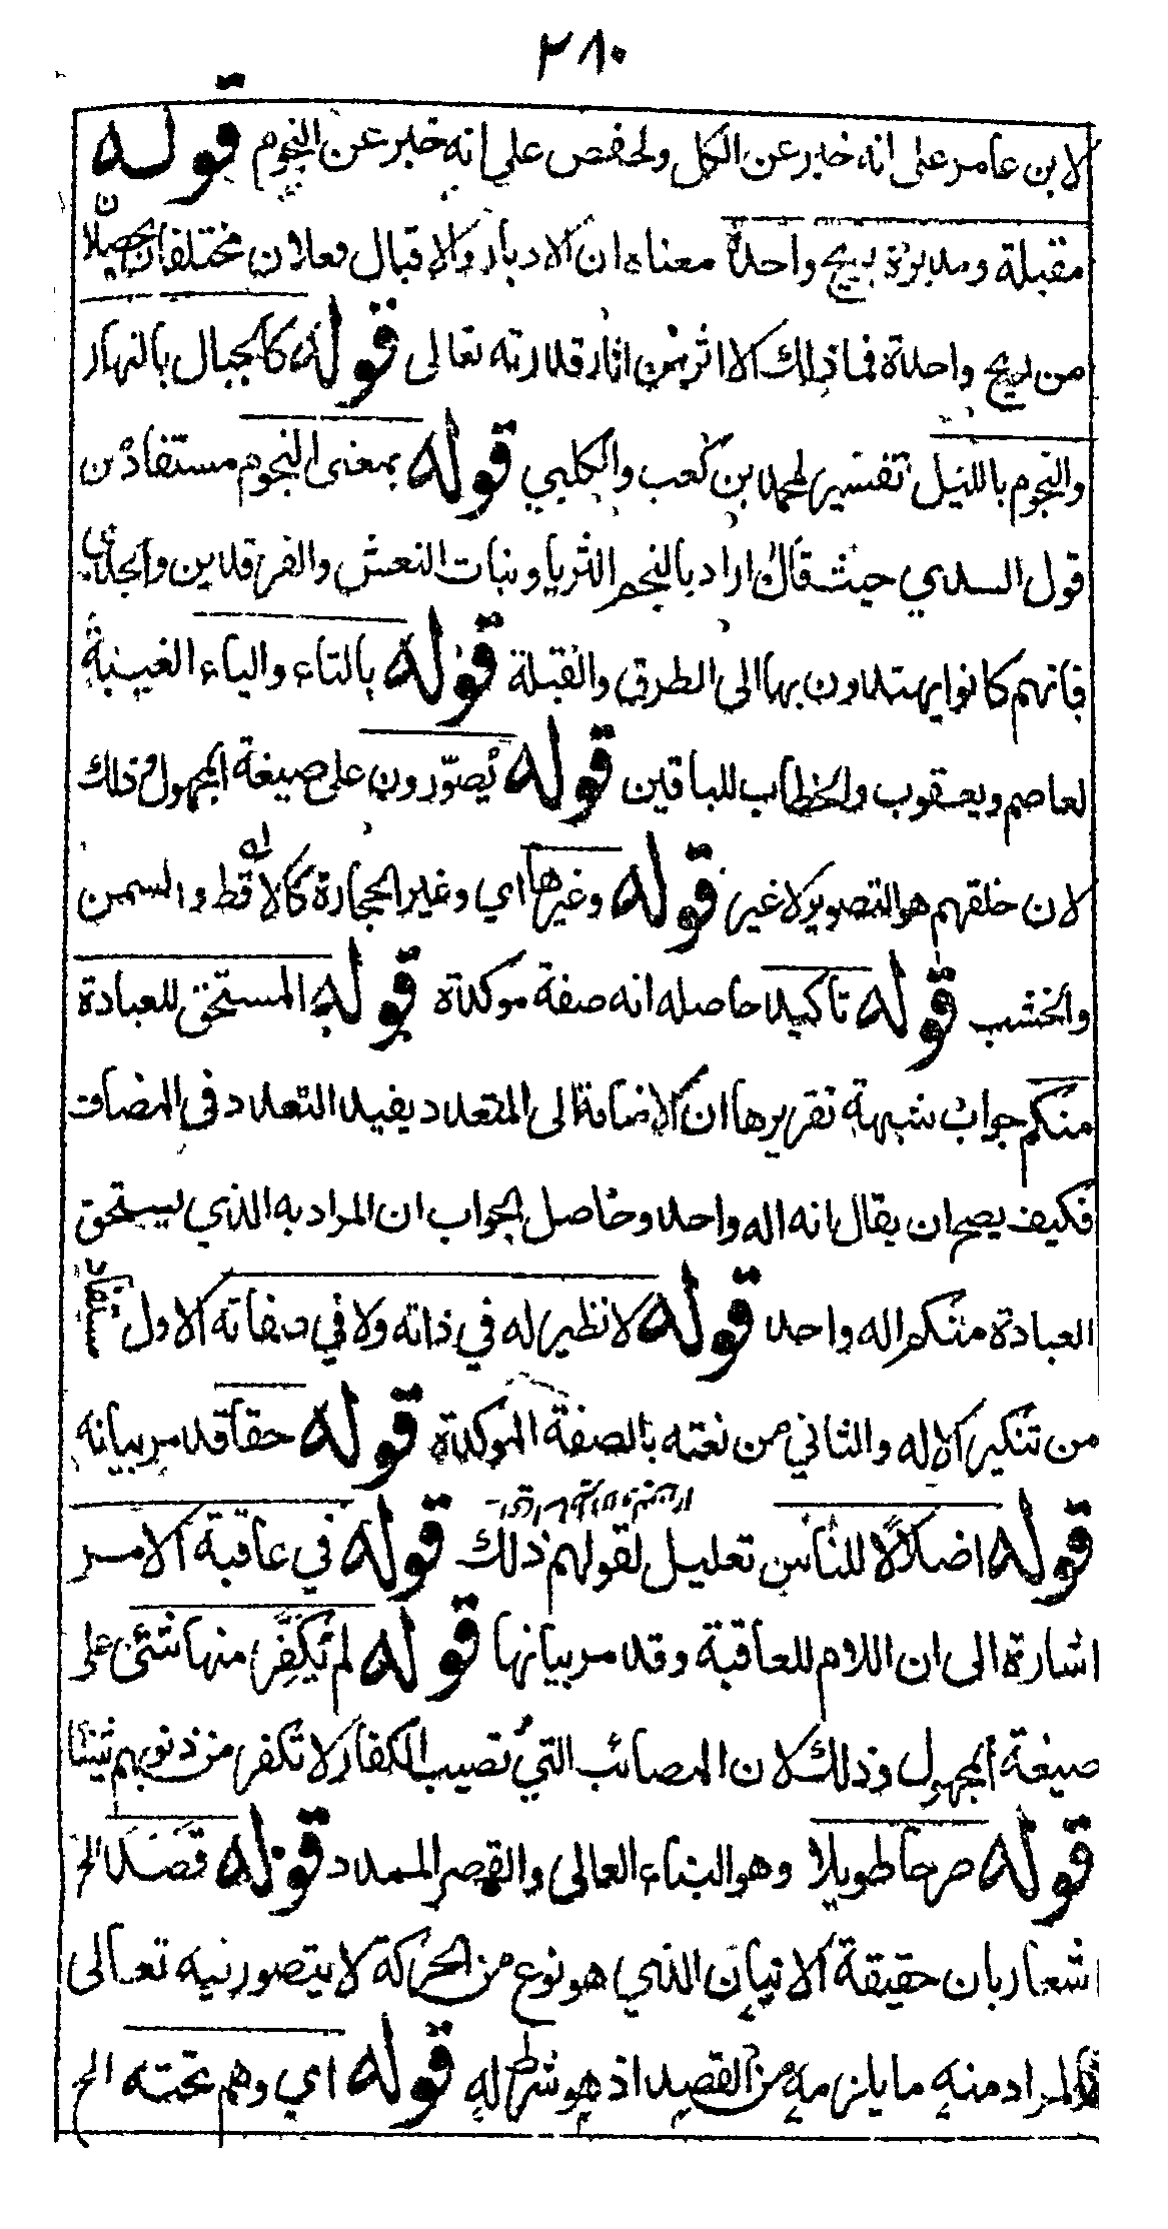 ٢٨٠
لابن عامر على انه خبر عن الكل ولحفص على انه خبر عن النجوم قوله
مقبلة ومدبرة بريح واحدة معناه ان الادبار والاقبال فعلان مختلفان يحصلان
من ريح واحدة فما ذلك الا اثر من اثار قدرته تعالى قوله كالجبال بالنهار
والنجوم بالليل تفسير لمحمد بن كعب والكلبي قوله بمعنى النجوم مستفاد من
قول السدي حيث قال اراد بالنجم الثريا وبنات النعش والفرقدين والجدي
فانهم كانوا يهتدون بها الى الطرق والقبلة قوله بالتاء والياء الغيبة
لعاصم ويعقوب والخطاب للباقين قوله يُصوّرون على صيغة المجهول وذلك
لان خلقهم هو التصوير لا غير قوله وغيرها اي وغير الحجارة كالاقط والسمن
والخشب قوله تاكيد حاصله انه صفة موكدة قوله المستحق للعبادة
منكم جواب شبهة تقريرها ان الاضافة الى المتعدد يفيد التعدد في المضاف
فكيف يصح ان يقال انه اله واحد وحاصل الجواب ان المراد به الذي يستحق
العبادة منكم اله واحد قوله لا نظير له في ذاته ولا في صفاته الاول مستفاد
من تنكير الاله والثاني من نعته بالصفة الموكدة قوله حقا قد مر بيانه
قوله اضلالًا للناس تعليل لقولهم ذلك قوله في عاقبة الامر
اشارة الى ان اللام للعاقبة وقد مر بيانها قوله لم يُكَفَّر منها شئ على
صيغة المجهول وذلك لان المصائب التي تصيب الكفار لا تكفر من ذنوبهم شيئا
قوله صرحا طويلا وهو البناء العالى والقصر الممدد قوله قَصَدَ الخ
اشعار بان حقيقة الاتيان الذي هو نوع من الحركة لا يتصور فيه تعالى
فالمراد منه ما يلزمه من القصد اذ هو شرط له قوله اي وهم تحته الخ